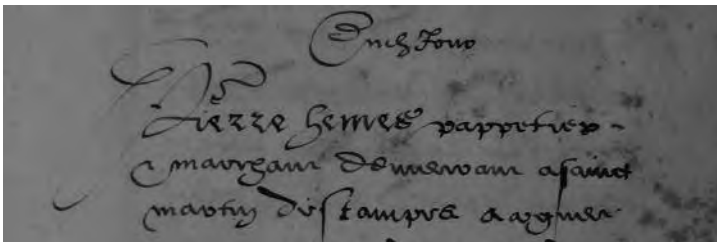 Dud Jour
Pierre hemes pappetier
marchant demeurant a sainct
martin destampes a